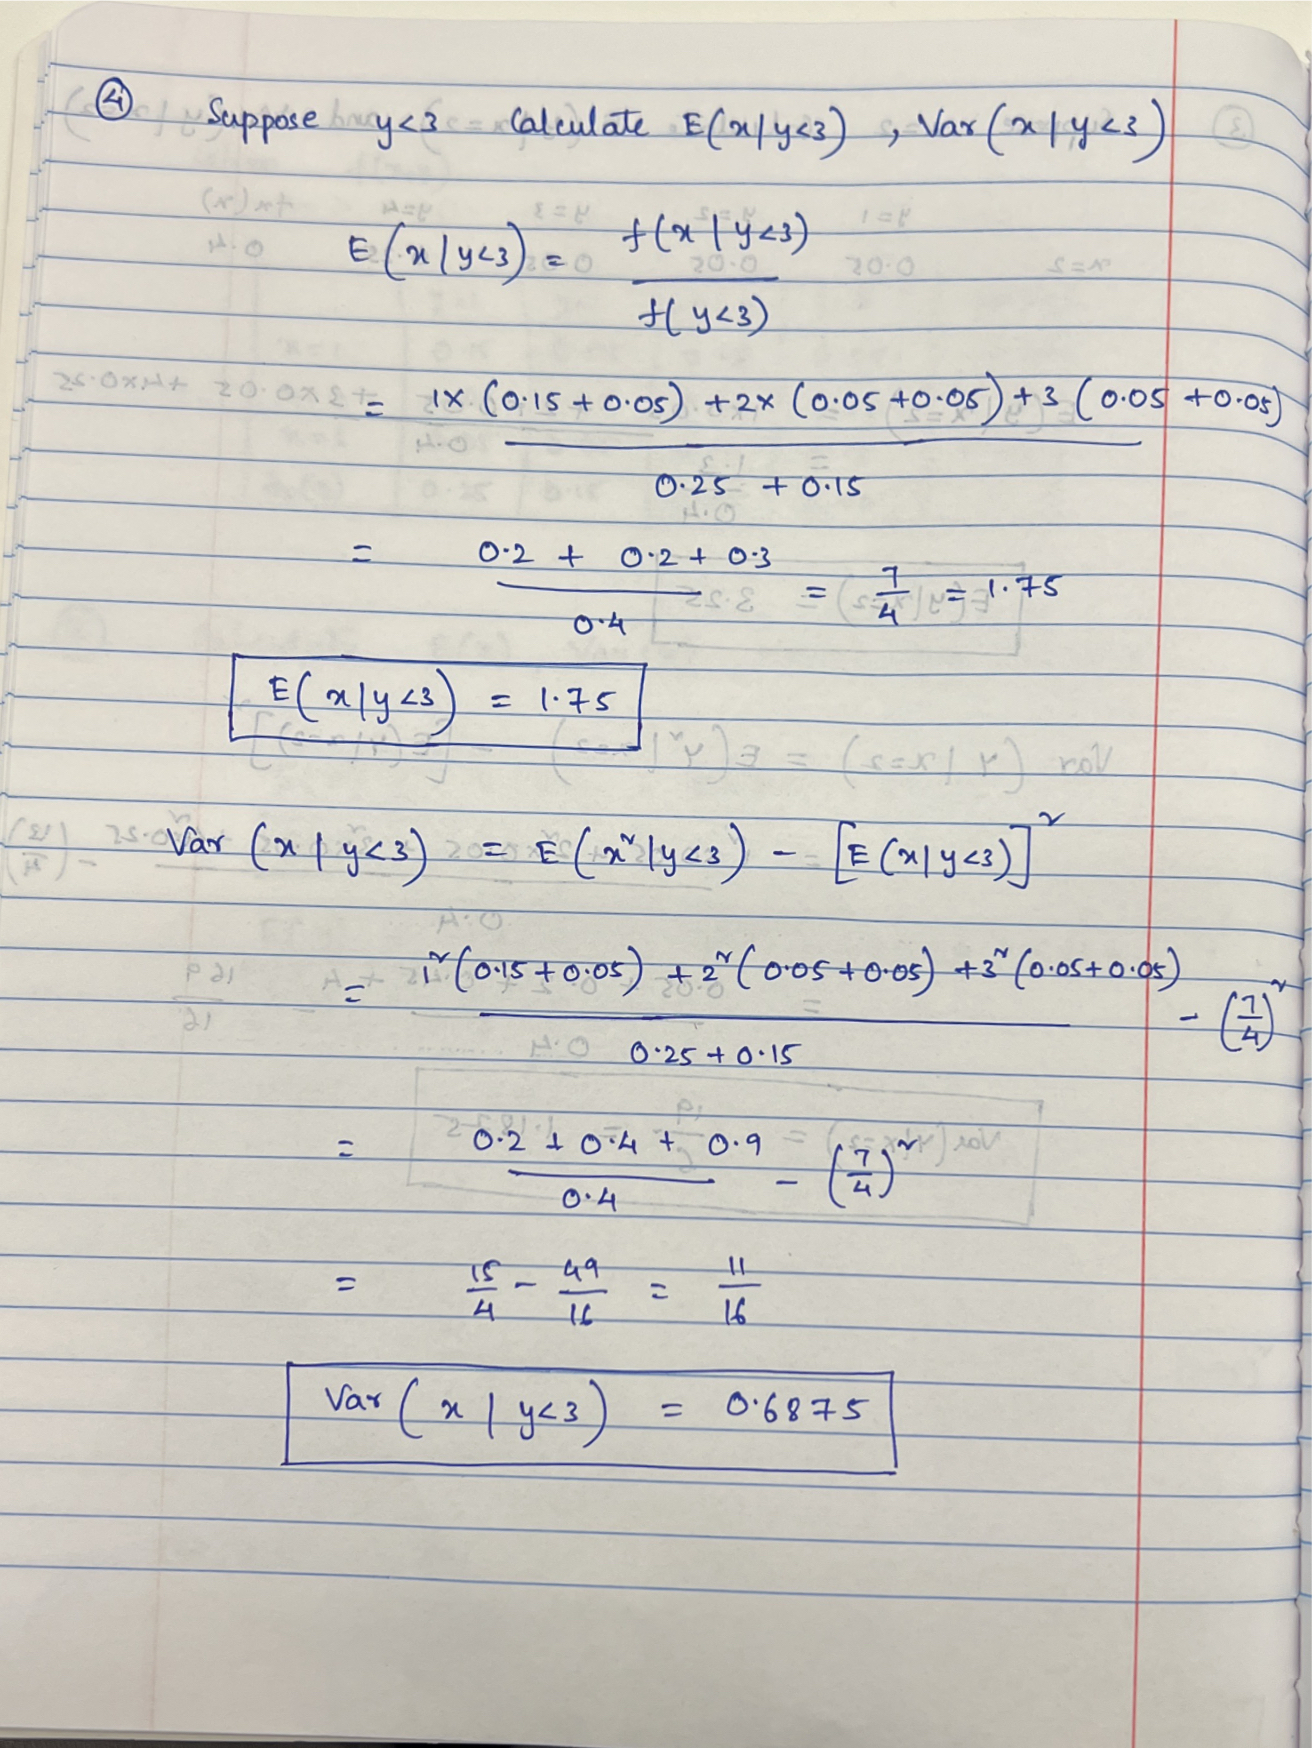 ④ Suppose y<3 Calculate E(x|y<3) , Var(x|y<3)
E(x|y<3) = f(x|y<3) / f(y<3)
= 1×(0.15+0.05) +2×(0.05+0.05)+3(0.05+0.05) / 0.25 + 0.15
= 0.2 + 0.2 + 0.3 / 0.4 = 7/4 = 1.75
E(x|y<3) = 1.75
Var (x|y<3) = E(x²|y<3) - [E(x|y<3)]²
= 1²(0.15+0.05) +2²(0.05+0.05) +3²(0.05+0.05) / 0.25+0.15 - (7/4)²
= 0.2 + 0.4 + 0.9 / 0.4 - (7/4)²
= 15/4 - 49/16 = 11/16
Var (x|y<3) = 0.6875